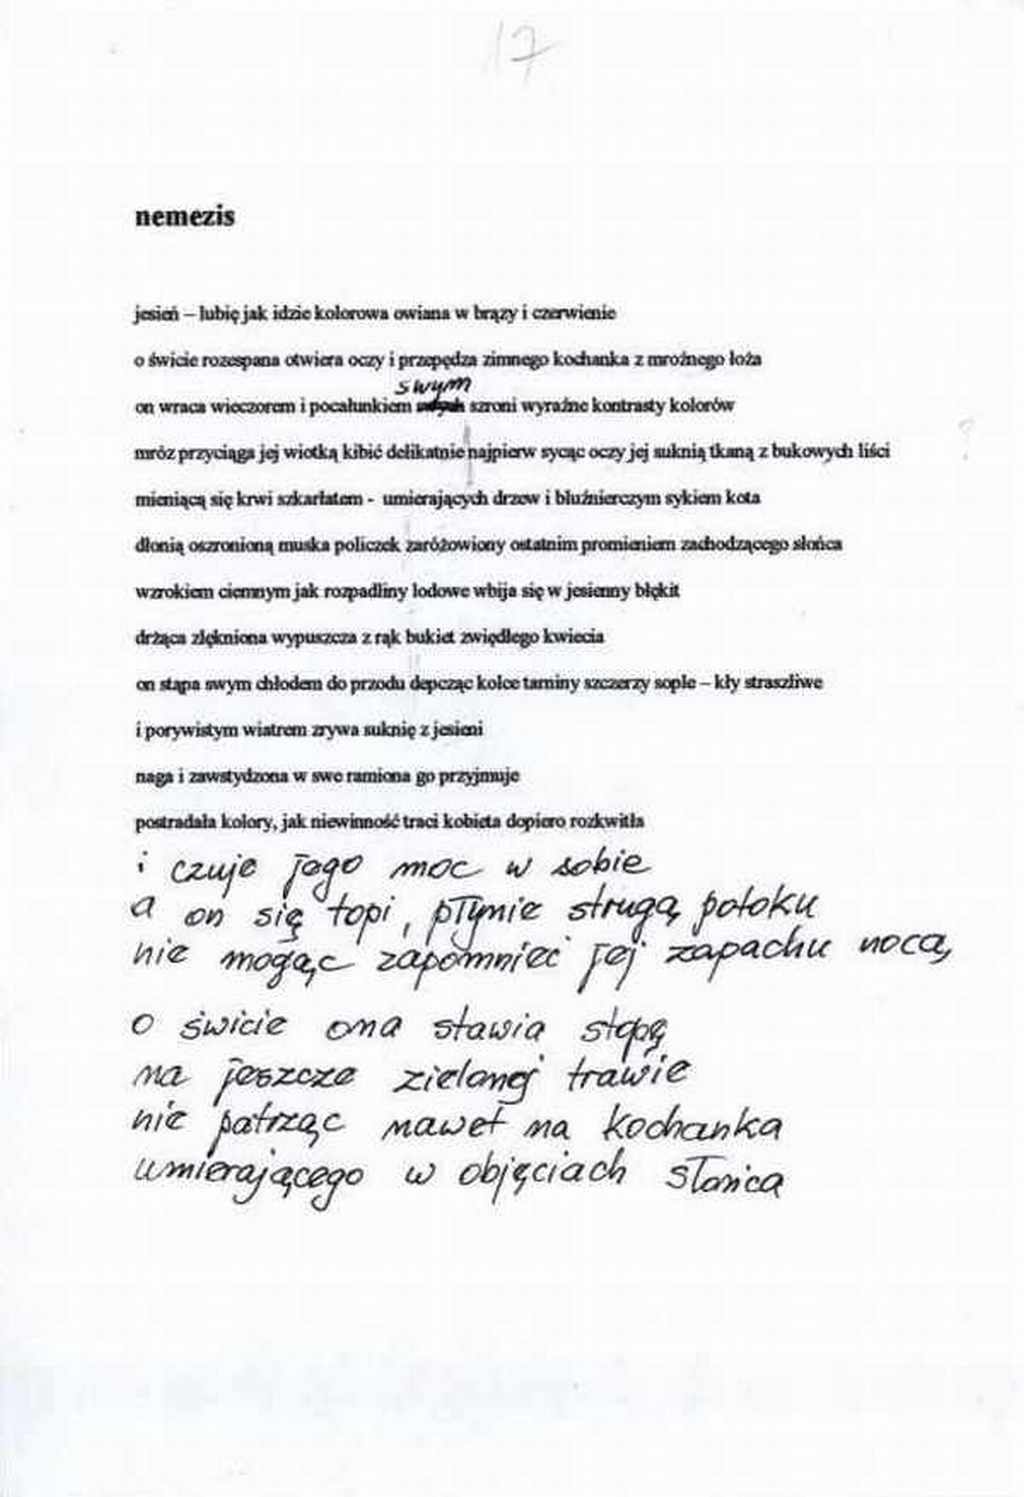 17
nemezis
jesień – lubię jak idzie kolorowa owiana w brązy i czerwienie
o świcie rozespana otwiera oczy i przepędza zimnego kochanka z mroźnego łoża
swym
on wraca wieczorem i pocałunkiem szroni wyraźne kontrasty kolorów
mróz przyciąga jej wiotką kibić delikatnie najpierw sycąc oczy jej suknią tkaną z bukowych liści
?
mieniącą się krwi szkarłatem - umierających drzew i bluźnierczym sykiem kota
dłonią oszronioną muska policzek zaróżowiony ostatnim promieniem zachodzącego słońca
wzrokiem ciemnym jak rozpadliny lodowe wbija się w jesienny błękit
drżąca zlękniona wypuszcza z rąk bukiet zwiędłego kwiecia
on stąpa swym chłodem do przodu depcząc kolce tarniny szczerzy sople – kły straszliwe
i porywistym wiatrem zrywa suknię z jesieni
naga i zawstydzona w swe ramiona go przyjmuje
postradała kolory, jak niewinność traci kobieta dopiero rozkwitła
i czuje jego moc w sobie
a on się topi, płynie strugą potoku
nie mogąc zapomnieć jej zapachu nocą
o świcie ona stawia stopę
na jeszcze zielonej trawie
nie patrząc nawet na kochanka
umierającego w objęciach słońca